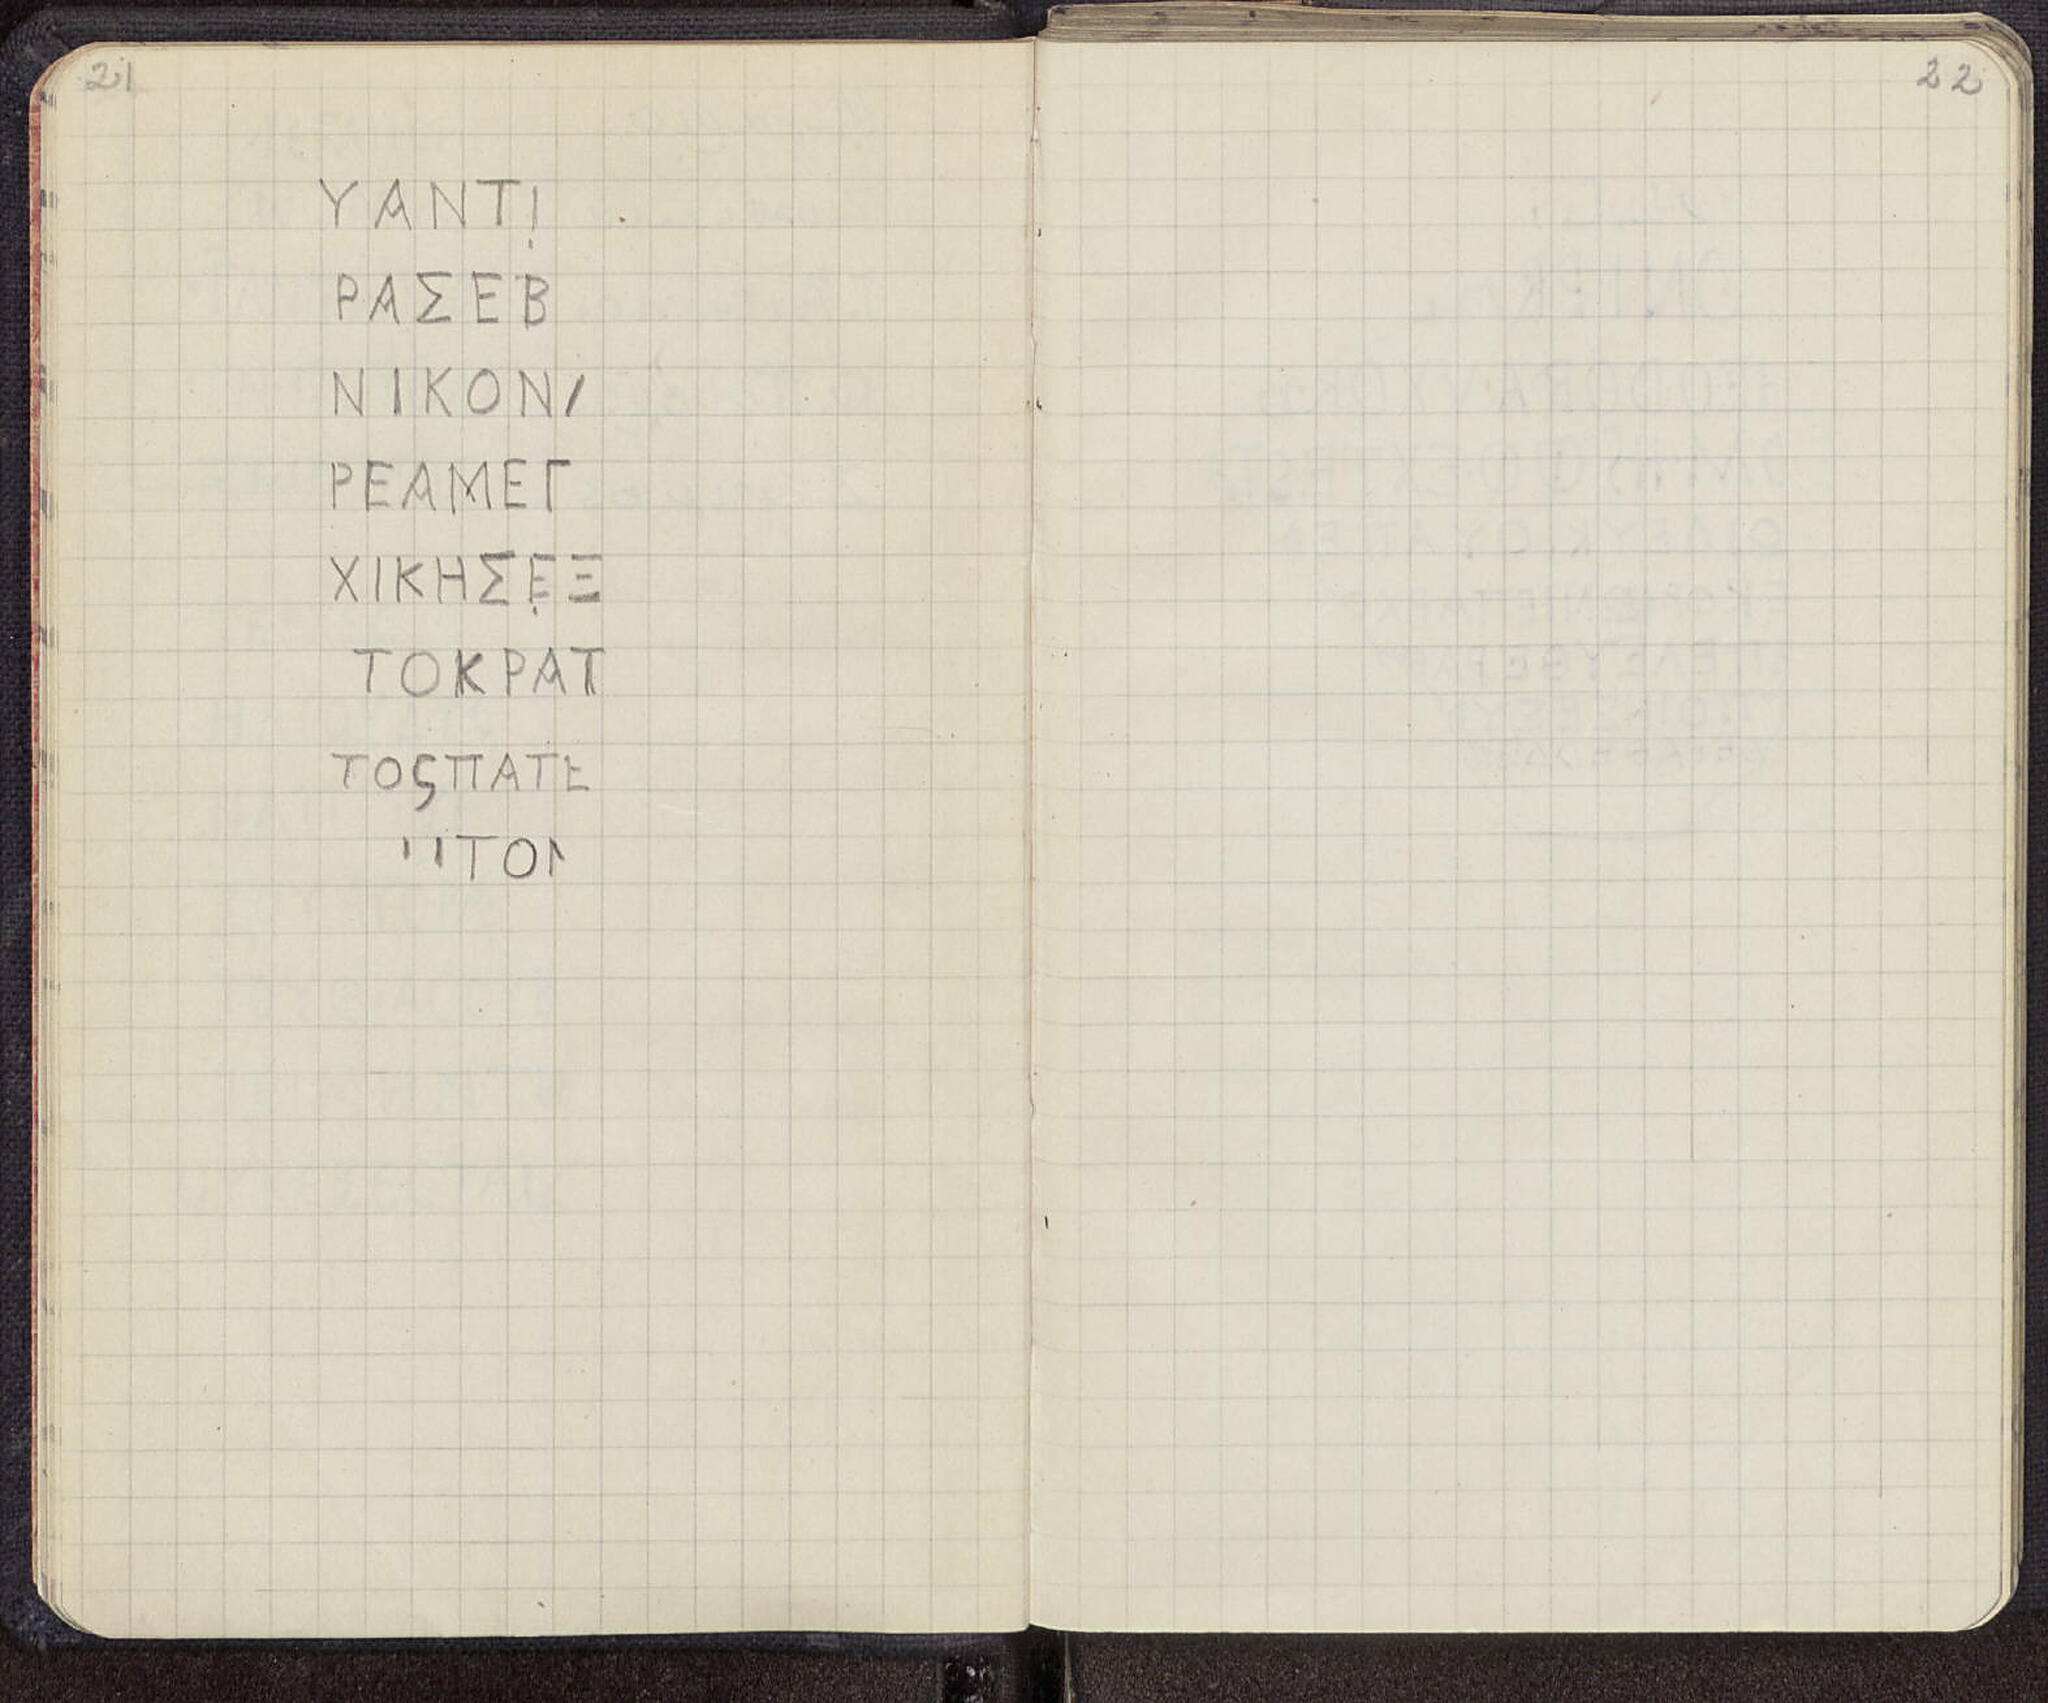 21
ΥΑΝΤΙ
ΡΑΣΕΒ
ΝΙΚΟΝΙ
ΡΕΑΜΕΓ
ΧΙΚΗΣΕΞ
ΤΟΚΡΑΤ
ΤΟϚΠΑΤΕ
ΤΟ
22